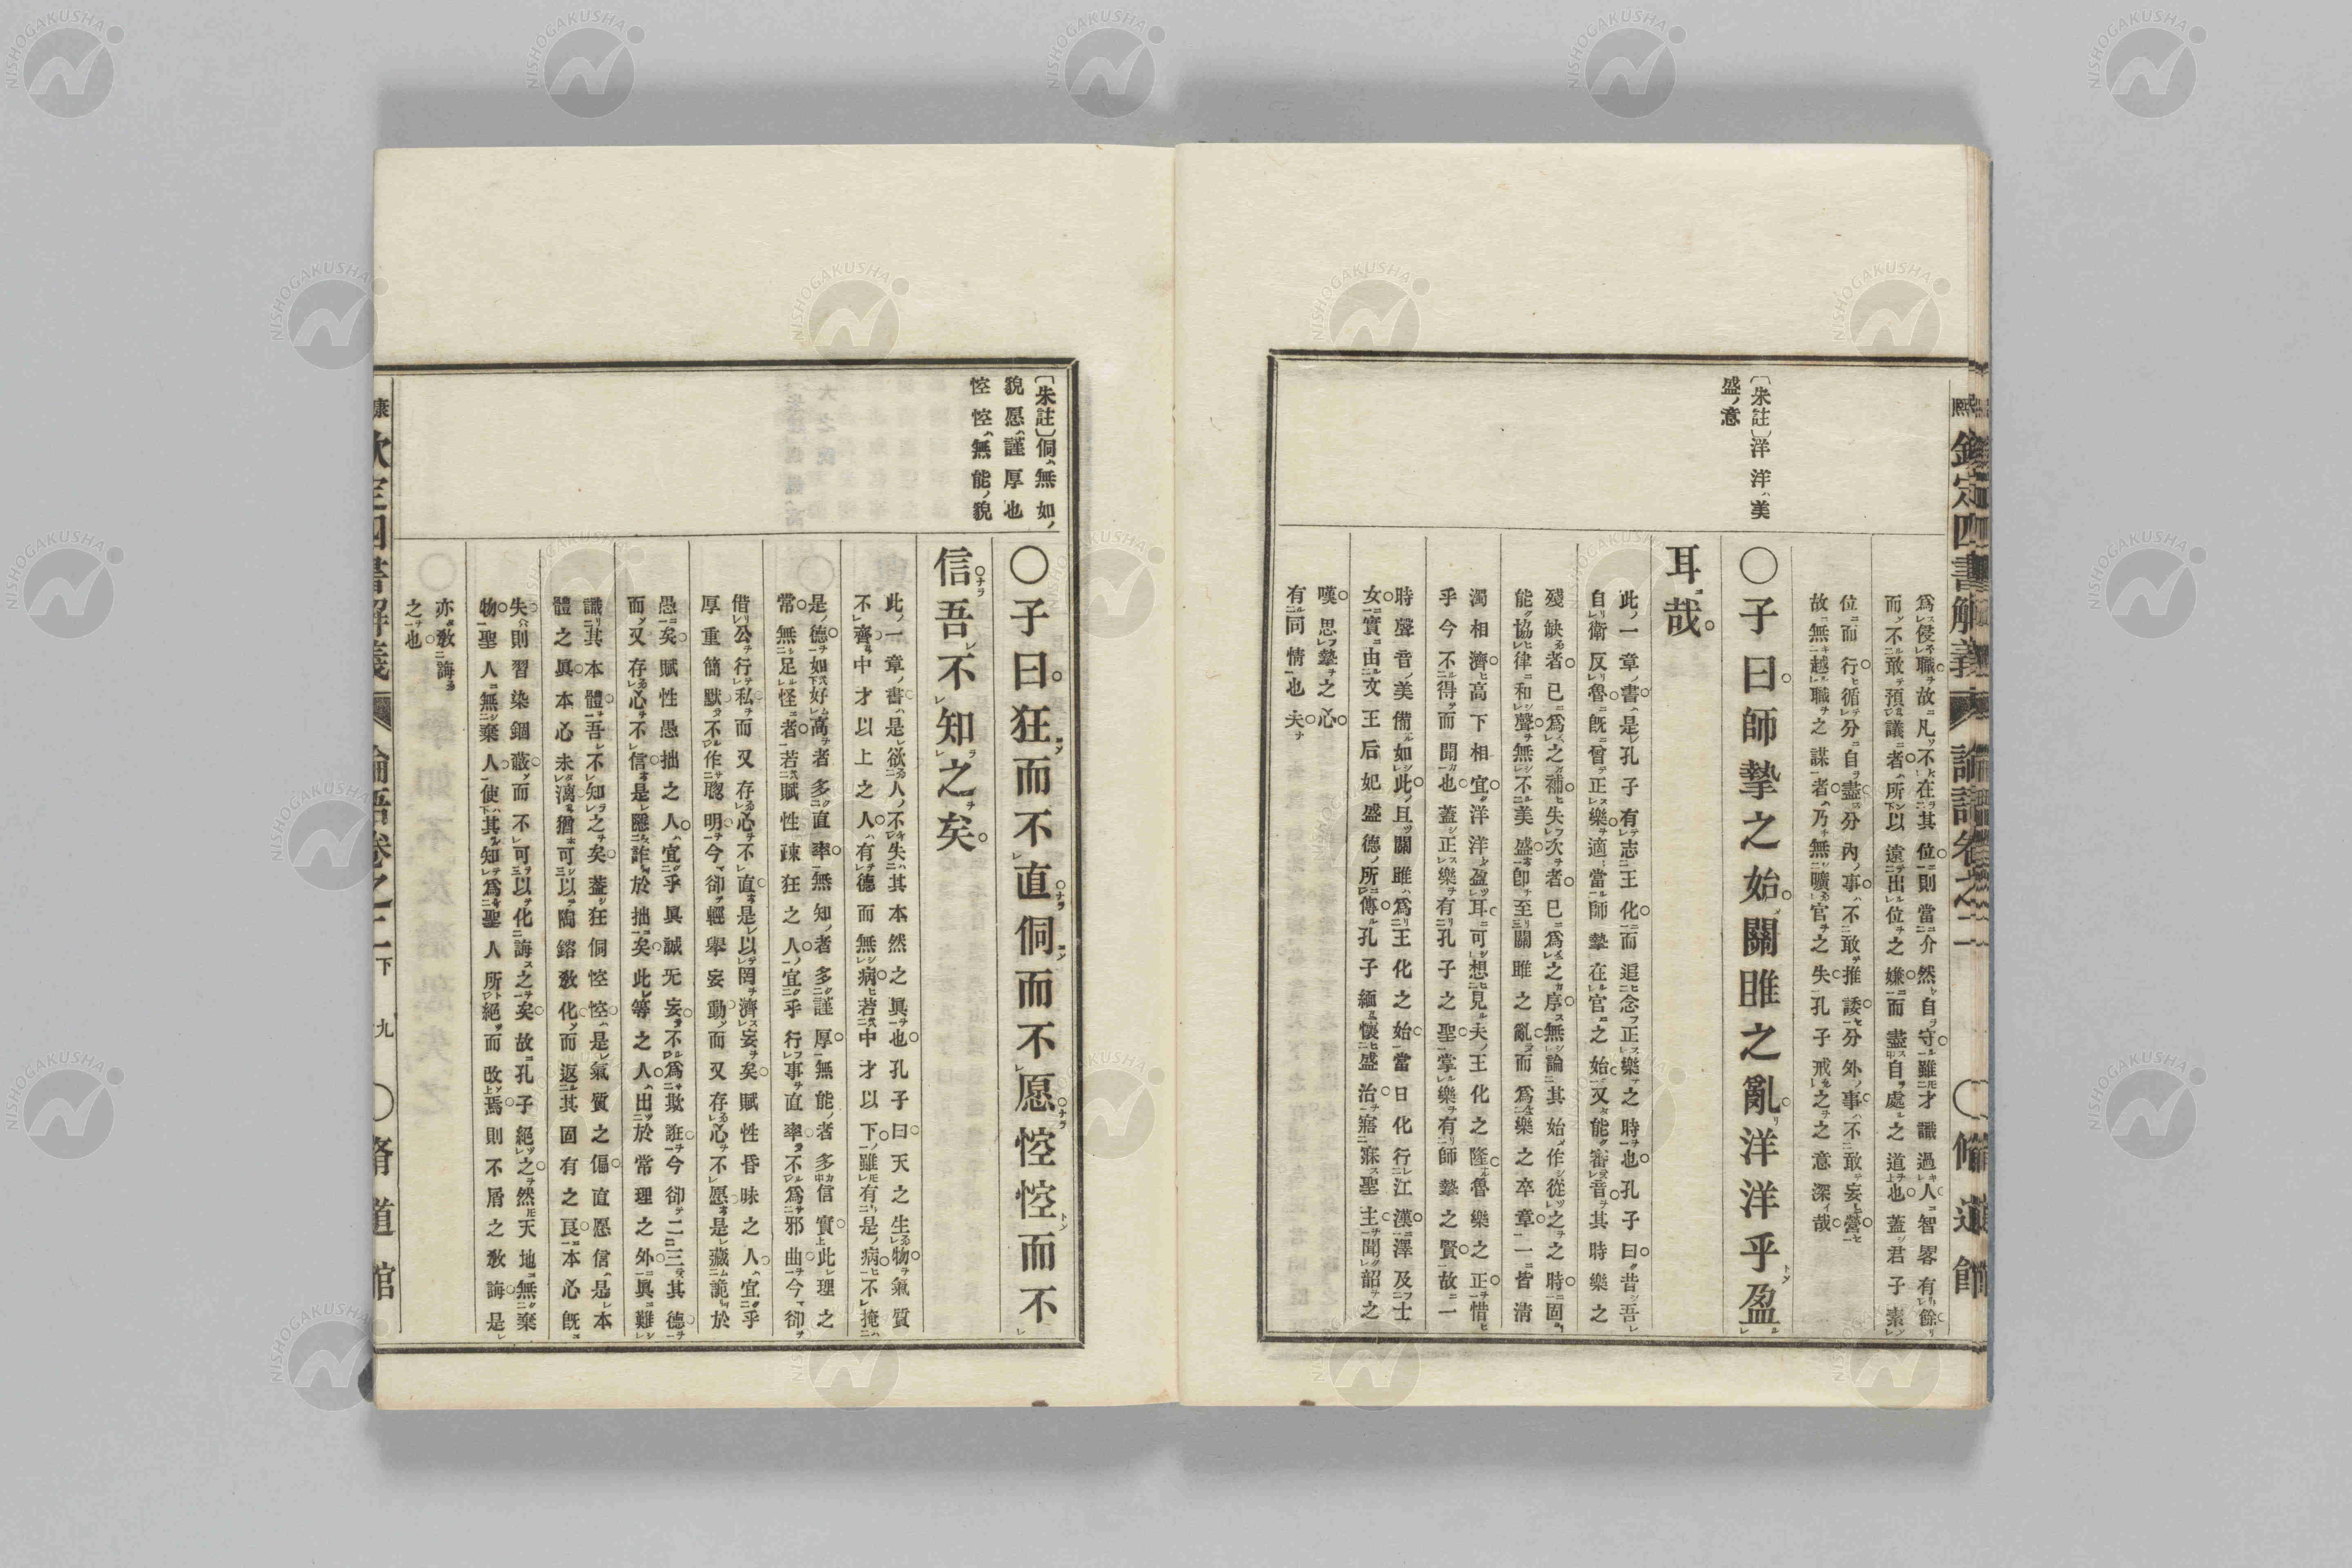 〔朱註〕洋洋ハ、美
盛ノ意
爲侵職故凡不在其位則當介然自守雖才識過人智畧有餘
而不敢預議者所以遠出位之嫌而盡自處之道也蓋君子素
位而行循分自盡分內事不敢推諉分外事不敢妄營
故無越職之謀者乃無曠官之失孔子戒之之意深哉
〇子曰。師摯之始。關雎之亂。洋洋乎盈
耳哉。
此一章書是孔子有志王化而追念正樂之時也孔子曰昔吾
自衛反魯旣曾正樂適當師摯在官之始又能審音其時樂之
殘缺者已爲之補失次者已爲之序無論其始作從之之時固
能協律和聲無不美盛卽至關雎之亂而爲樂之卒章一皆清
濁相濟高下相宜洋洋盈耳可想見夫王化之隆魯樂之正惜
乎今不得而聞也蓋正樂有孔子之聖掌樂有師摯之賢故一
時聲音美備如此且關雎爲王化之始當日化行江漢澤及士
女實由文王后妃盛德所傳孔子緬懷盛治寤寐聖主聞韶之
嘆思摯之心
有同情也夫
熙 欽定四書解義 論語卷之二 〇脩道館
〔朱註〕侗ハ、無知ノ
貌愿ハ、謹厚也
悾悾ハ、無能ノ貌
〇子曰。狂而不直侗而不愿悾悾而不
信吾不知之矣。
此一章書是欲人不失其本然之眞也孔子曰天之生物氣質
不齊中才以上之人有德而無病若中才以下雖有是病不掩
是德如好高者多直率無知者多謹厚無能者多信實此理之
常無足怪者若賦性疎狂之人宜乎行事直率不爲邪曲今卻
借公行私而又存心不直是以罔濟妄矣賦性昏昧之人宜乎
厚重簡默不作聰明今卻輕舉妄動而又存心不愿是藏詭於
愚矣賦性愚拙之人宜乎眞誠无妄不爲欺誑今卻二三其德
而又存心不信是隱詐於拙矣此等之人出於常理之外眞難
識其本體吾不知之矣蓋狂侗悾悾是氣質之偏直愿信是本
體之眞本心未漓猶可以陶鎔敎化而返其固有之良本心旣
失則習染錮蔽而不可以化誨之矣故孔子絕之然天地無棄
物聖人無棄人使其知爲聖人所絕而改焉則不屑之敎誨是
亦敎誨
之也
康 欽定四書解義 論語卷之二下 九 〇脩道館